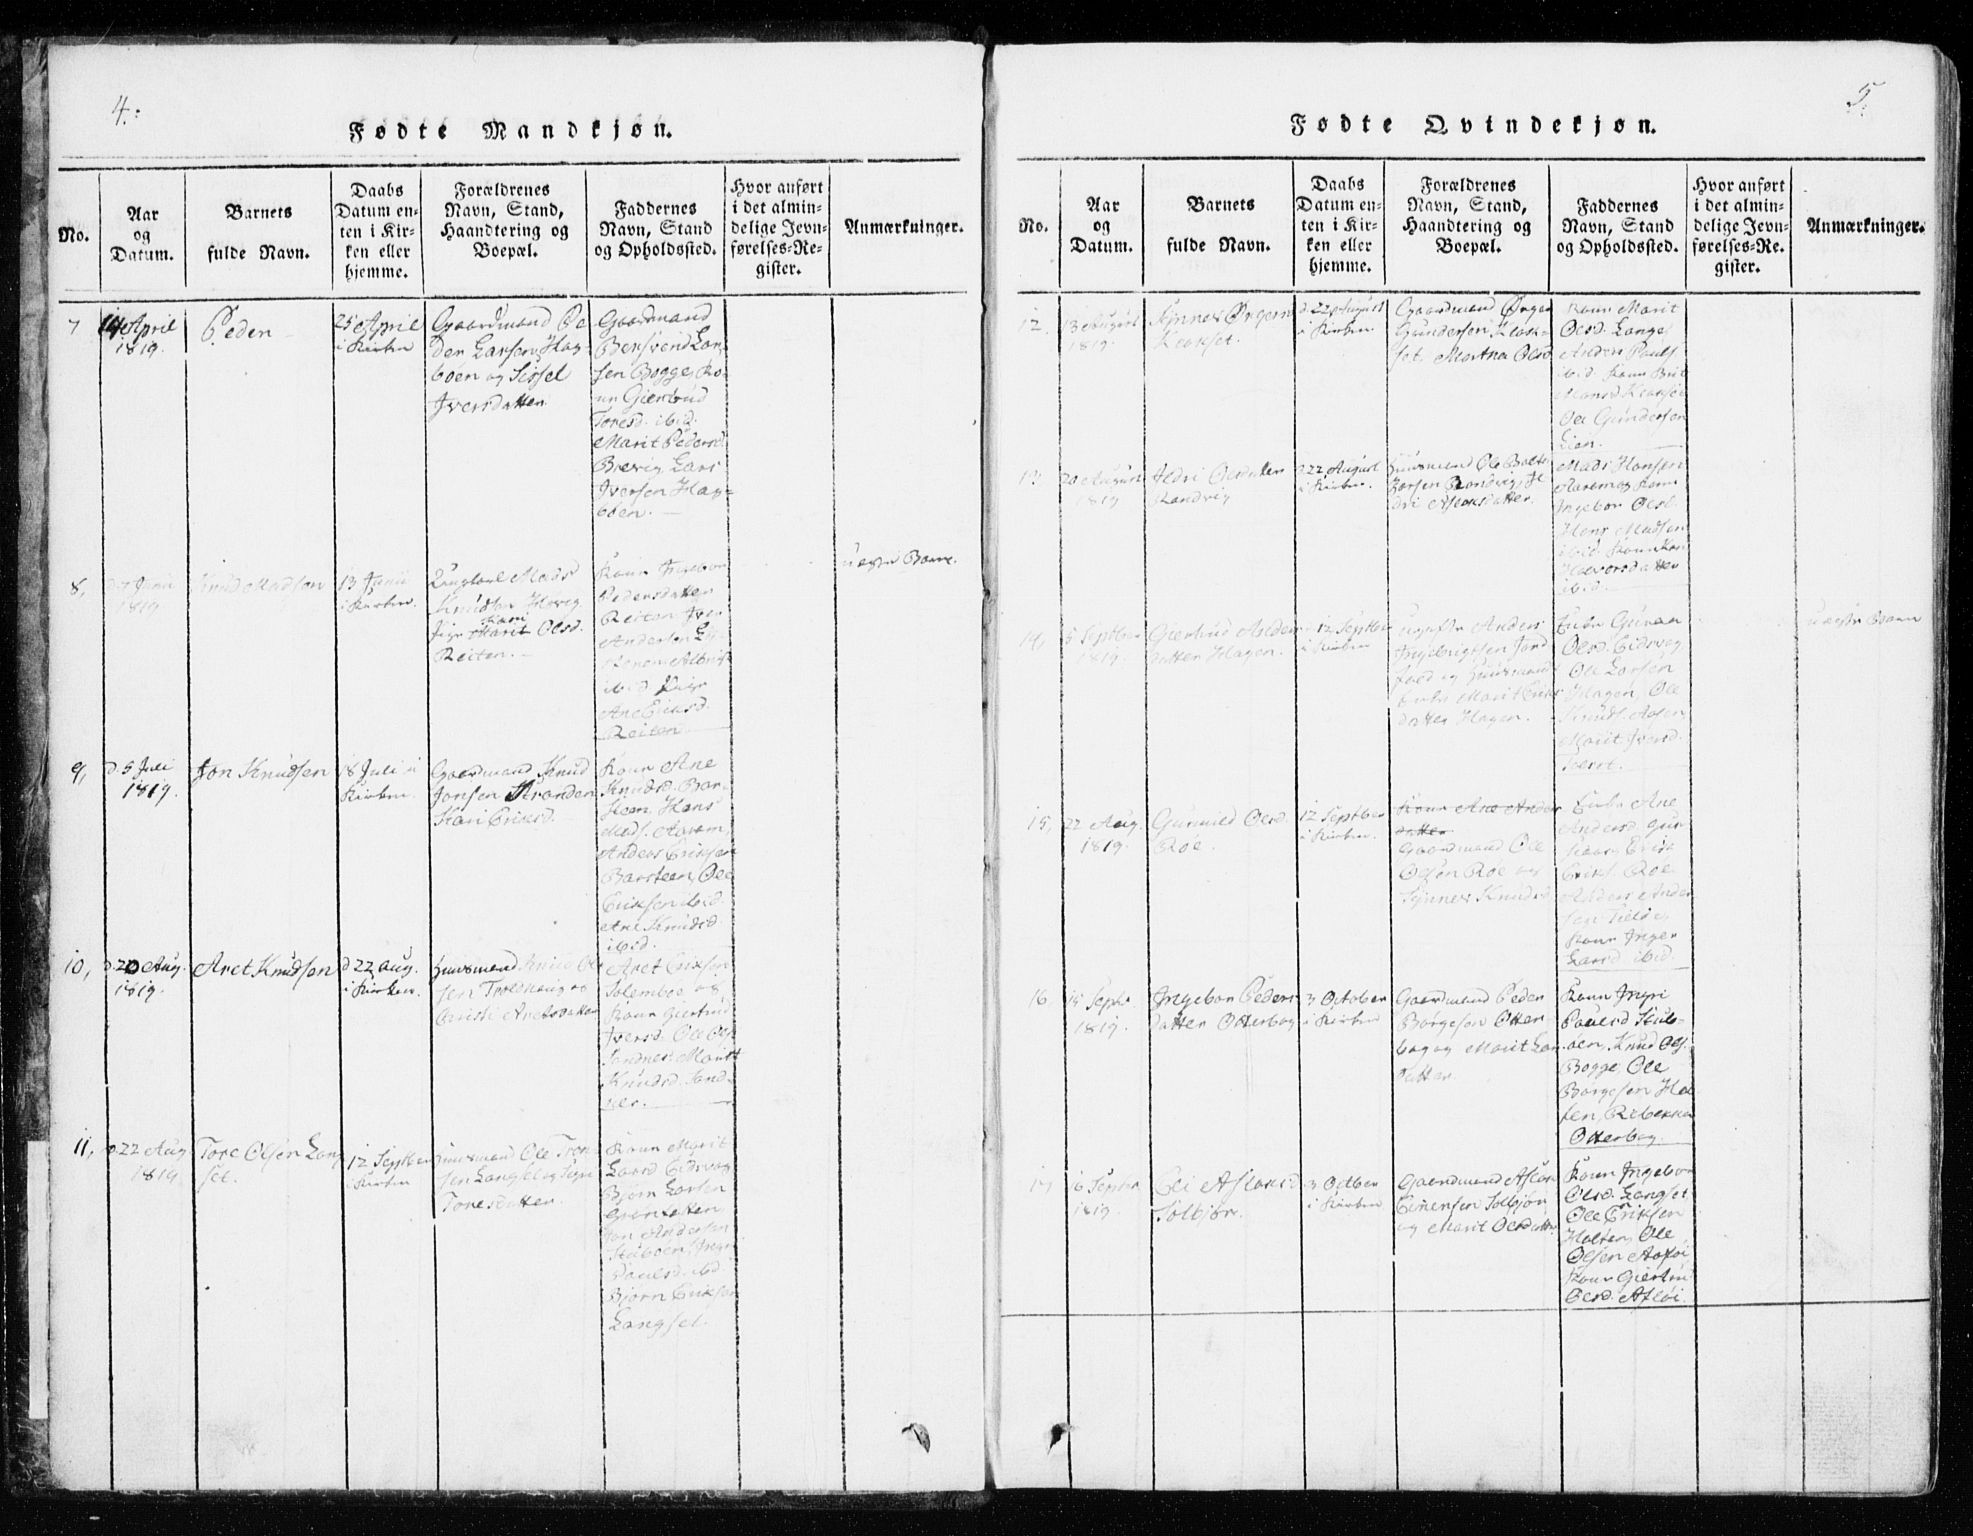 4.
Fødte Mandkjøn.
No.
Aar
og
Datum.
Barnets
fulde Navn.
Daabs
Datum en-
ten i Kir-
ken eller
hjemme.
Forældrenes
Navn, Stand,
Haandtering og
Boepæl.
Faddernes
Navn, Stand
og Opholdssted.
Hvor anført
i det almin-
delige Jevn-
førelses-Re-
gister.
Anmærkninger.
7
14 April
1819.
Peder
25 April
i Kirken
Gaardmand Pe
der Larsen Hag-
boen og Sissel
Iversdatter
Gaardmand
Bersvend Lar
sen Bogge, Ko-
ne Giertrud
Toresd. ibid.
Marit Pedersd
Brevig Lars
Iversen Hag-
boen.
8,
d. 7 Junii
1819
Knud Madsen
13 Junii
i Kirken.
Ungkarl Mads
Knudsen Hovig
Pige Marit Olsd.
Kari
Reiten.
Kone Ingebor
Pedersdatter
Reiten Iver
Andersen
ibid Pige
Ane Ericsd.
Reiten
uægte Barn.
9,
d. 5 Juli
1819.
Jon Knudsen
18 Juli i
Kirken.
Gaardmand Knud
Jonsen Stranden
Kari Eriksd.
Kone Ane
Knudsd. Bar-
steen, Hans
Mads. Aarem,
Anders Eriksen
Barsteen, Ole
Eriksen ibid.
Ane Knudsd.
ibid.
10,
d. 20 Aug.
1819.
Aret Knudsen
d 22 Aug.
i Kirken.
Huusmand Knud Ol
sen Troldhaug og
Christi Aretsdatter
Aret Eriksen
Solemboe og
Kone Giertrud
Iversd. Ole Ols.
Sandnes Marit
Knudsd. Sand-
nes.
11,
d. 22 Aug
1819
Tore Olsen Lang
set.
12 Septber
i Kirken
Huusmand Ole Tron
sen Langset og Sigri
Toresdatter.
Kone Marit
Larsd Eidsvog
Bjørn Larsen
Grønsetter
Jon Andersen
Stuboen, Ingri
Paulsd. ibd.
Bjørn Eriksen
Langset.
5.
Fødte Qvindekjøn.
No.
Aar
og
Datum.
Barnets
fulde Navn.
Daabs
Datum en-
ten i Kir-
ken eller
hjemme.
Forældrenes
Navn, Stand,
Haandtering og
Boepæl.
Faddernes
Navn, Stand
og Opholdssted.
Hvor anført
i det almin-
delige Jevn-
førelses-Re-
gister.
Anmærkninger.
12.
13 August
1819.
Synnev Ørgers
Kleakset.
d. 22 August
i Kirken
Gaardmand Ørger
Gundersen Kleak-
set. Martha Olsd
Kone Marit
Olsd. Lange
Anders Pauls
ibid. Kone Brit
Monsd Kleakset
Ole Gundersen
Lien.
13,
20 August
1819
Ildri Olsdatter
Randvig
d 22 August
i Kirken.
Huusmand Ole Balt
zarsen Randvig, Il
dri Aslaksdatter.
Mads Hansen
Aarem og Kone
Ingebor Olsd.
Hans Madsen
ibid. Kone Kari
Halversdatter
ibid.
14,
5 Septber
1819.
Giertrud Anders
datter Hagen.
d 12 Septber
i Kirken
ugifte Anders
Ingebrigtsen
og Huusmand
Enke Marit Eriks
datter Hagen.
Enke Guraa
Olsd. Eidsvog,
Ole Larsen
Hagen, Ole
Knuds. Aasen,
Marit Iversd.
uægte Barn
15,
22 Aug.
1819.
Gunnild Olsd.
Roe.
12 Septber
i Kirken
Kone Ane Anders
datter
Gaardmand Ole
Olsen Roe og
Synnev Knudsd
Enke Ane
Andersd.
Erik
Eriks. Roe
Anders Ander
sen
Kone Inger
Larsd ibid.
16.
15 Septr.
1819.
Ingebor Peders
datter Otterbog
3 October
i Kirken
Gaardmand Peder
Børgesen Otter-
bog og Marit Lars
datter
Kone Ingri
Paulsd. Stub-
øen, Knud Ols.
Bogge, Ole
Børgesen Hol
ten, Rebekka
Otterbog.
17,
16 Septbr
1819.
Eli Aslaksd
Solbjør.
3 Octber
i Kirken
Gaardmand Aslak
Einersen Solbjør
og Marit Olsdatter
Kone Ingebor
Olsd. Langset
Ole Eriksen
Holten, Ole
Olsen Asløi
Kone Giertru
Olsd. Asløi.